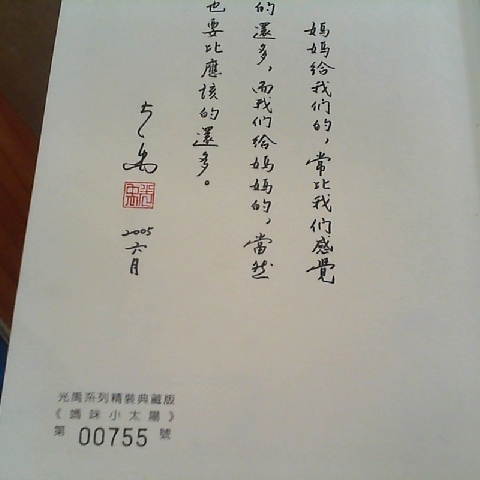 媽媽給我们的，常比我们感覺
的還多，而我们给媽媽的，當然
也要比應該的還多。
2005
六月
光禹系列精裝典藏版
《媽咪小太陽》
第 00755 號